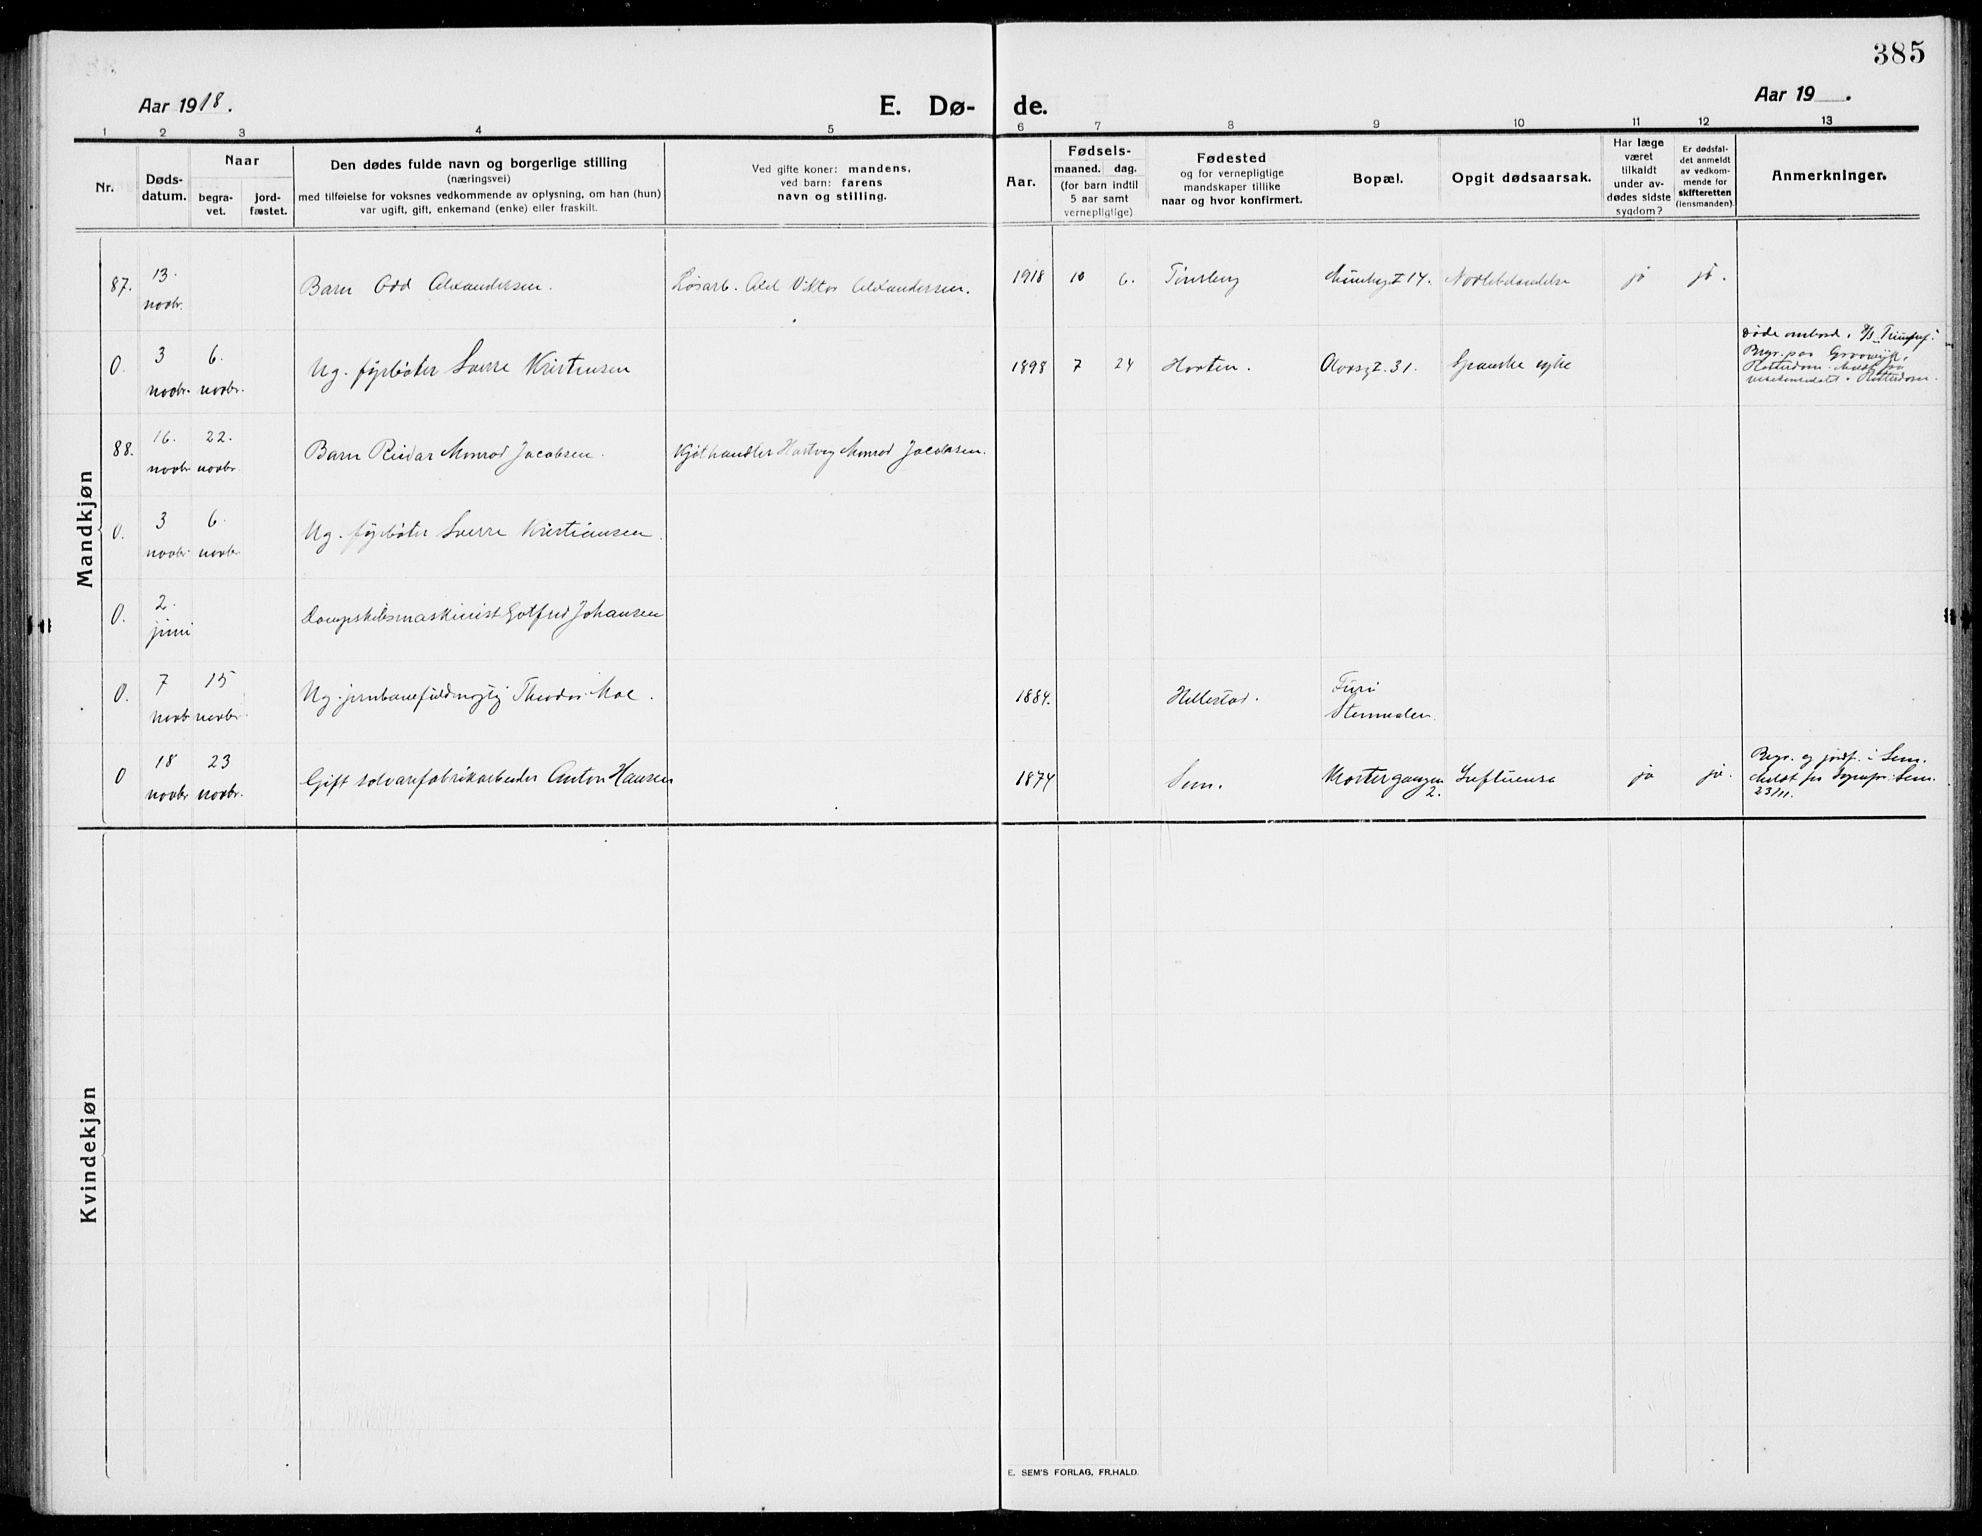 385
Aar 1918.
E. Dø- de.
Aar 19 .
1 2 3 4 5 6 7 8 9 10 11 12 13
Nr.
Døds-
datum.
Naar
begra-
vet.
jord-
fæstet.
Den dødes fulde navn og borgerlige stilling
(næringsvei)
med tilføielse for voksnes vedkommende av oplysning, om han (hun)
var ugift, gift, enkemand (enke) eller fraskilt.
Ved gifte koner: mandens,
ved barn: farens
navn og stilling.
Aar.
Fødsels-
maaned. dag.
(for barn indtil
5 aar samt
vernepligtige)
Fødested
og for vernepligtige
mandskaper tillike
naar og hvor konfirmert.
Bopæl.
Opgit dødsaarsak.
Har læge
været
tilkaldt
under av-
dødes sidste
sygdom?
Er dødsfal-
det anmeldt
av vedkom-
mende for
skifteretten
(lensmanden).
Anmerkninger.
Mandkjøn
87. 13. novbr. Barn Odd Alexandersen. Løsarb. Viktor Alexandersen. 1918 10 6. Tønsberg 14. ja ja.
0. 3 novbr. 6. novbr. Ug. fyrbøter Sverre Kristensen 1898 7 24 Horten. 31. Spanske syke
Døde ombord i
Rotterdam.
Rotterdam.
88. 16. novbr 22. novbr. Barn Reidar Monrad Jacobsen. Kjøthandler Hartvig Monrad Jacobsen.
0. 3 novbr. 6. novbr. Ug. fyrbøter Sverre Kristiansen.
0. 2. juni Dampskibsmaskinist Gotfred Johansen
0. 7 novb 15 novbr. Ug. jernbanefuldmægtig Theodor Moe. 1884. Hillestad. Furu
Stenmalen.
0 18 novbr. 23 novbr. Gift solvarefabrikarbeider Anton Hansen 1874 Sem. Klostergangen
2. Influensa ja ja.
Begr. og jordf. i Sem.
Meldt for Sognepr. Sem.
23/11.
Kvindekjøn
E. SEM'S FORLAG, FR.HALD.